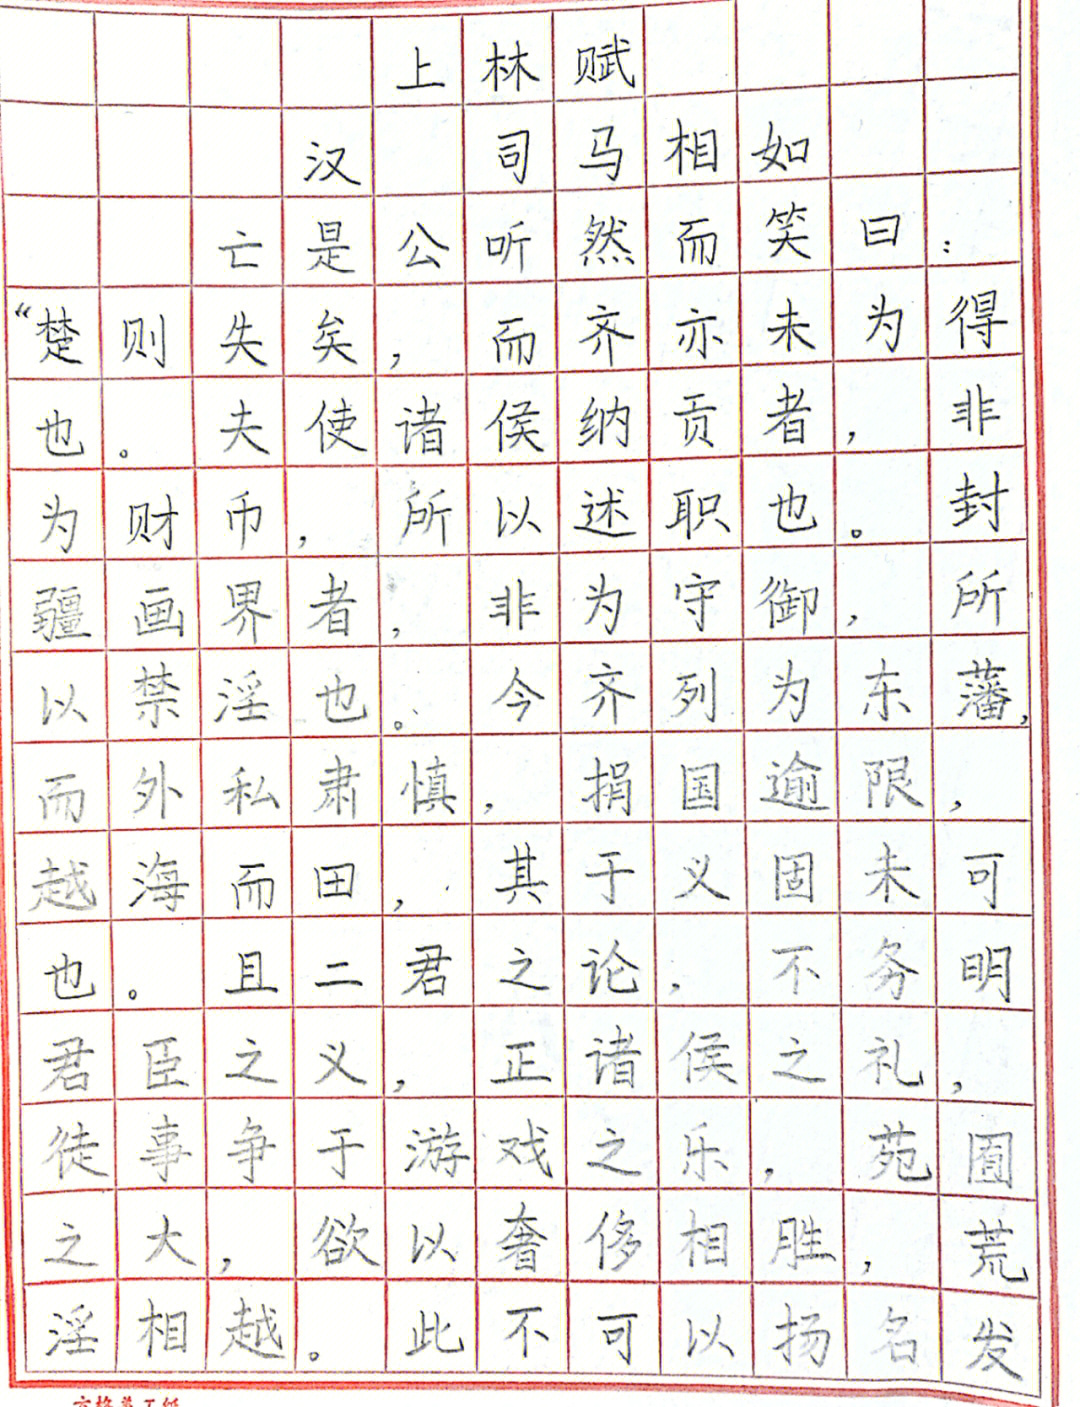 上林赋
汉 司马相如
亡是公听然而笑曰：
“楚则失矣，而齐亦未为得
也。夫使诸侯纳贡者，非
为财币，所以述职也。封
疆画界者，非为守御，所
以禁淫也。今齐列为东藩，
而外私肃慎，捐国逾限，
越海而田，其于义固未可
也。且二君之论，不务明
君臣之义，正诸侯之礼，
徒事争于游戏之乐，苑囿
之大，欲以奢侈相胜，荒
淫相越。此不可以扬名发